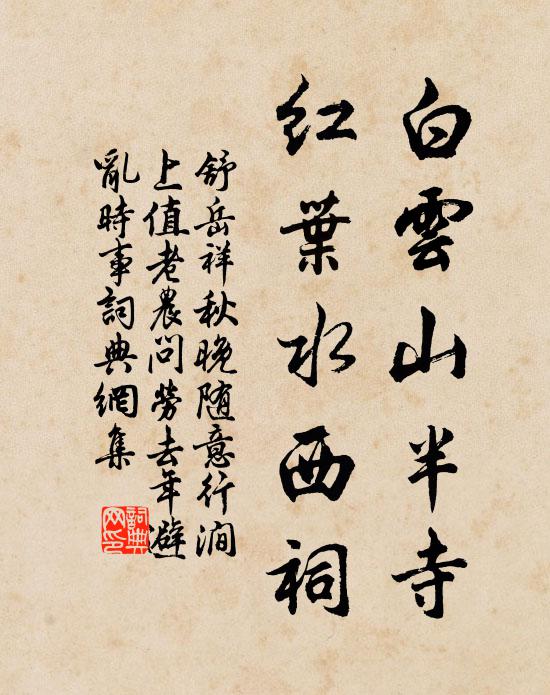 白雲山半寺
紅葉水西祠
舒岳祥秋晚随意行澗
上值老農問勞去年避
亂時事詞典網集
詞典
网印